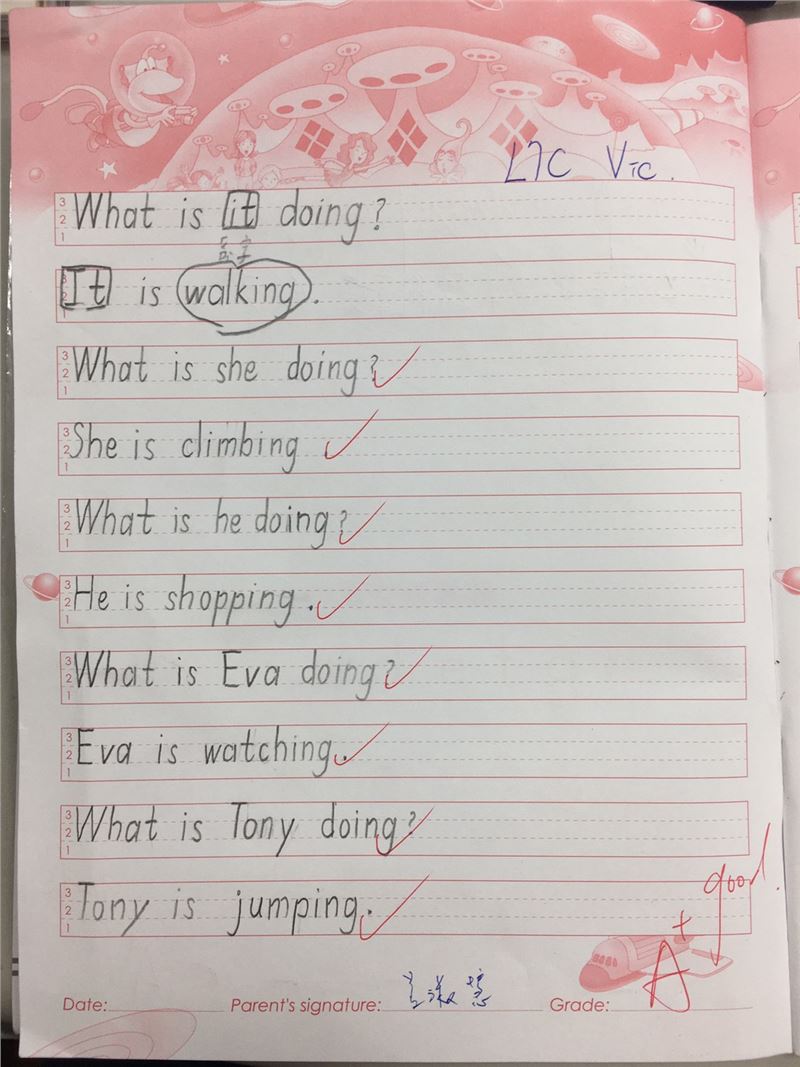 L7C Vic.
What is it doing?
It is walking.
What is she doing?
She is climbing
What is he doing?
He is shopping.
What is Eva doing?
Eva is watching.
What is Tony doing?
Tony is jumping.
good.
A+
Date: Parent's signature: Grade: